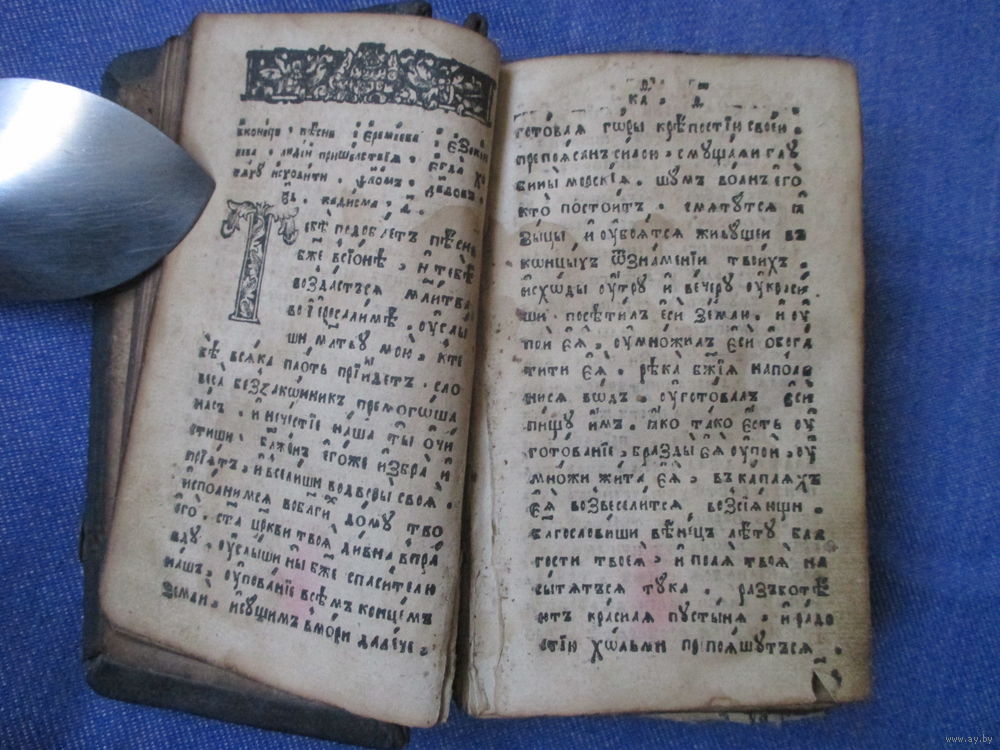 вконецъ . пѣснь . Іереміева . Іезекіи
лева . людій пришелствія . егда хо
тяху исходити . ѱаломъ . дв҃довъ .
каѳисма .
Тебѣ подобаетъ пѣснь
бж҃е всіонѣ , и҆ тебѣ
воздастъся мл҃итва
во і҆ерⷭ҇салимѣ , оу҆слы
ши мл҃тву мою . к тє
бѣ всѧка плоть прїи́детъ . сло
веса беззакѡнникъ премогѡша
насъ , и҆ нечестїѧ наша ты̀ ѡ҆чи
стиши . бл҃жен є҆гоже и҆збра и҆
прїѧтъ , и҆ вселиши водворы̀ своѧ .
и҆сполнимсѧ воблг҃и дому тво
є҆го . ст҃а цр҃кви твоѧ дивна вправ
ду . оу҆слыши ны̀ бж҃е спасителю
нашъ . оу҆пованїе всѣмъ концемъ
земли , и҆сущимъ вмори далече .
готоваѧ го́ры крѣпостїю своєю .
препоѧсанъ силою . смущаѧи глу
бины морскїѧ . шумъ волнъ є҆го
кто̀ постоитъ . смѧтутсѧ ꙗ҆
зы́цы и҆ оу҆боѧтсѧ живущеи въ
концыхъ ѿзнаменїи твоихъ .
и҆схо́ды оу҆тру и҆ вечеру оу҆краси
ши . посѣтилъ є҆си землю . и҆ оу҆
пои є҆ѧ , оу҆множилъ є҆си ѡ҆бога
тити є҆ѧ . рѣка бж҃їѧ напол
нисѧ водъ . оу҆готовалъ є҆си
пищу и҆мъ . ꙗ҆ко тако є҆сть оу҆
готованїе , бразды̀ є҆ѧ оу҆пои , оу҆
множи жита є҆ѧ , въкаплѧхъ
є҆ѧ возвеселитсѧ возсїѧющи .
благословиши вѣнецъ лѣту бла
гости твоеѧ , и҆ полѧ твоѧ на
сы́тѧтъсѧ тука . разъботѣ
ютъ краснаѧ пустынѧ , и҆ радо
стїю хо́лми препоѧшутъсѧ .